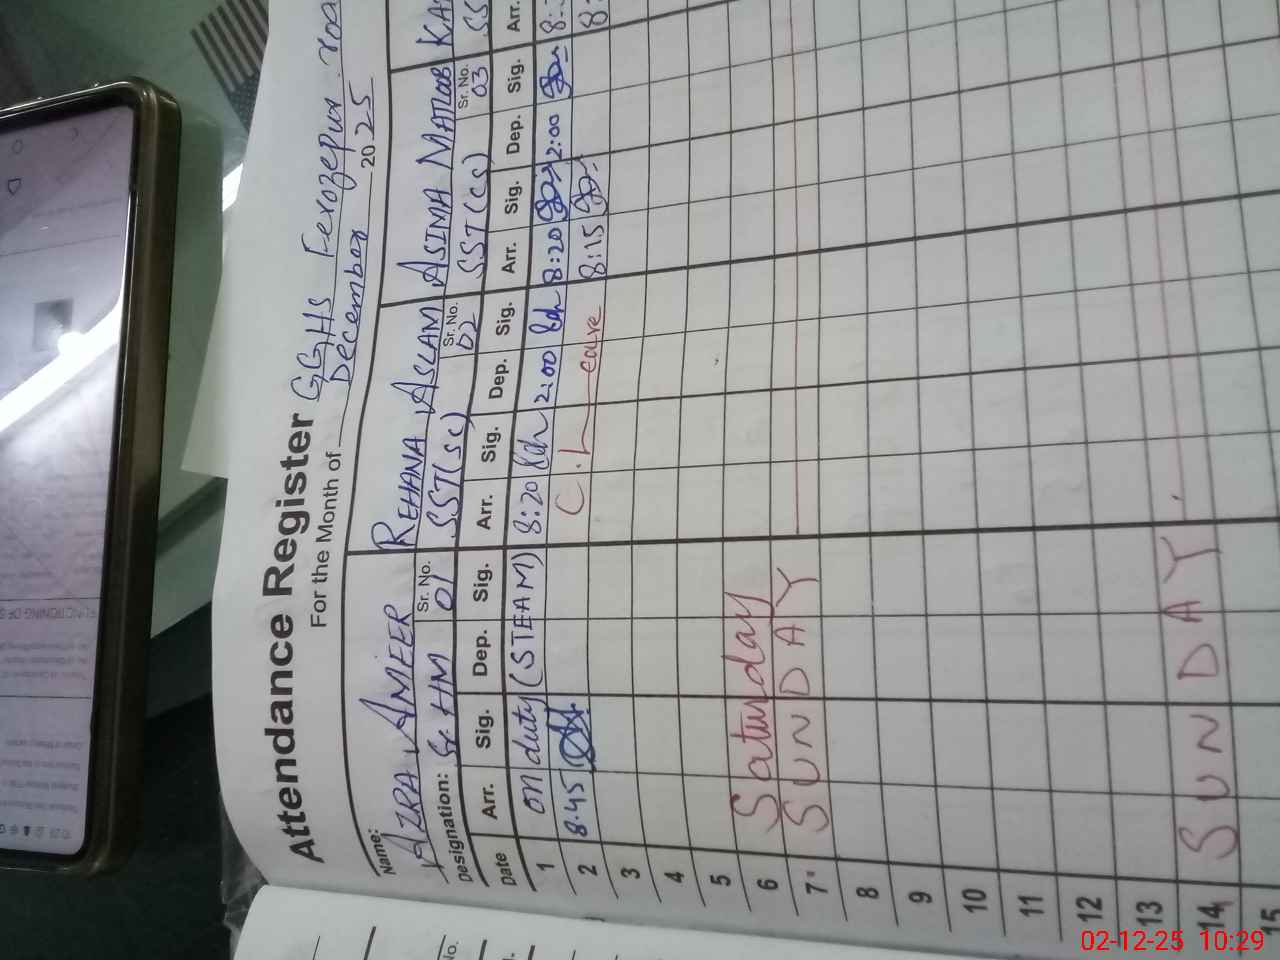 Attendance Register GGHS Ferozepur roa
For the Month of December 2025
Name: AZRA AMEER REHANA ASLAM ASIMA MATLOOB KA
Designation: Sr HM Sr. No. 01 SST(SC) Sr. No. 02 SST(CS) Sr. No. 03 SS
Date Arr. Sig. Dep. Sig. Arr. Sig. Dep. Sig. Arr. Sig. Dep. Sig. Arr.
1 on duty (STEAM) 8:20 2:00 8:20 2:00 8:
2 8.45 C.Leave 8:15 8:
3
4
5
6 Saturday
7 SUNDAY
8
9
10
11
12
13
14 SUNDAY
15
02-12-25 10:29